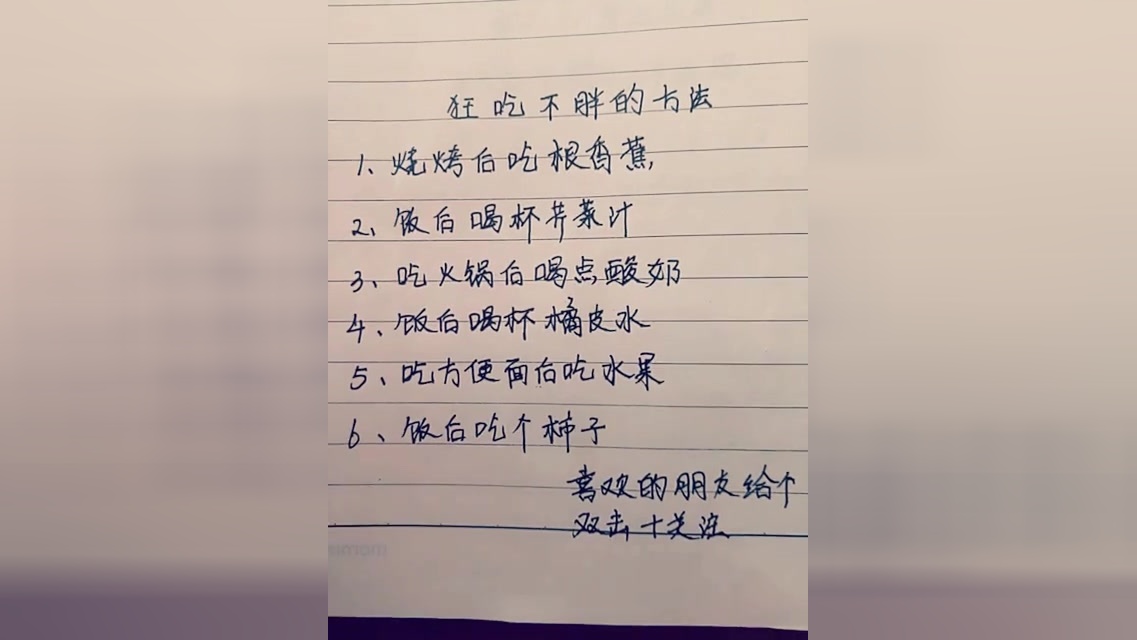 狂吃不胖的方法
1、烧烤后吃根香蕉,
2、饭后喝杯芹菜汁
3、吃火锅后喝点酸奶
4、饭后喝杯橘皮水
5、吃方便面后吃水果
6、饭后吃个柿子
喜欢的朋友给个
双击+关注